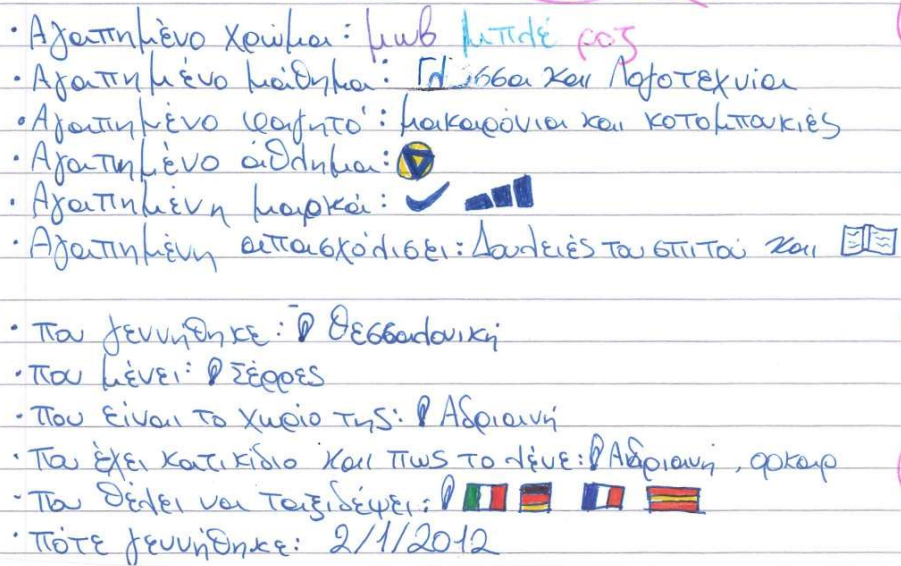 · Αγαπημένο χρώμα: μωβ μπλέ ροζ
· Αγαπημένο μάθημα: Γλώσσα και Λογοτεχνία
· Αγαπημένο φαγητό: μακαρόνια και κοτομπουκιές
· Αγαπημένο άθλημα:
· Αγαπημένη μαρκά:
· Αγαπημένη απασχόλισει: Δουλειές του σπιτού και
· Που γεννήθηκε: Θεσσαλονική
· Που μένει: Σέρρες
· Που είναι το χωριό της: Αδριανή
· Που έχει κατικίδιο και πως το λένε: Αδριανή, οκαρ
· Που θέλει να ταξιδέψει:
· Πότε γεννήθηκε: 2/1/2012